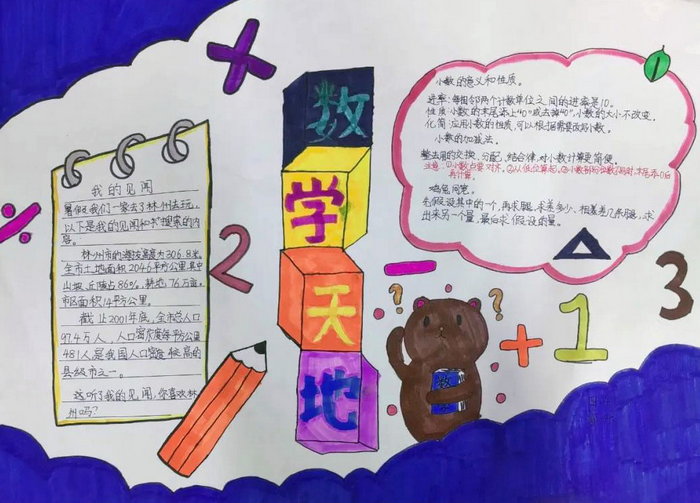 数
学
天
地
我的见闻
暑假我们一家去了林州去玩,
以下是我的见闻和搜索的内
容。
林州市的海拔高度为306.8米。
全市土地面积2046平方公里其中
山坡、丘陵占86%。耕地76万亩。
市区面积14平方公里。
截止2001年底,全市总人口
97.4万人,人口密度每平方公里
481人,是我国人口密度较高的
县级市之一。
这听了我的见闻,你喜欢林
州吗?
小数的意义和性质。
进率:每相邻两个计数单位之间的进率是10。
性质:小数的末尾添上"0"或去掉"0",小数的大小不改变。
化简:应用小数的性质,可以根据需要改写小数。
小数的加减法。
整法用的交换、分配、结合律,对小数计算更简便。
注意:①小数点要对齐。②从低位算起。
再计算。
鸡兔问笼。
先假设其中的一个,再求腿,求差多少、相差几条腿,求
出来另一个量,最后求假设的量。
×
÷
2
−
?
?
+
1
3
数